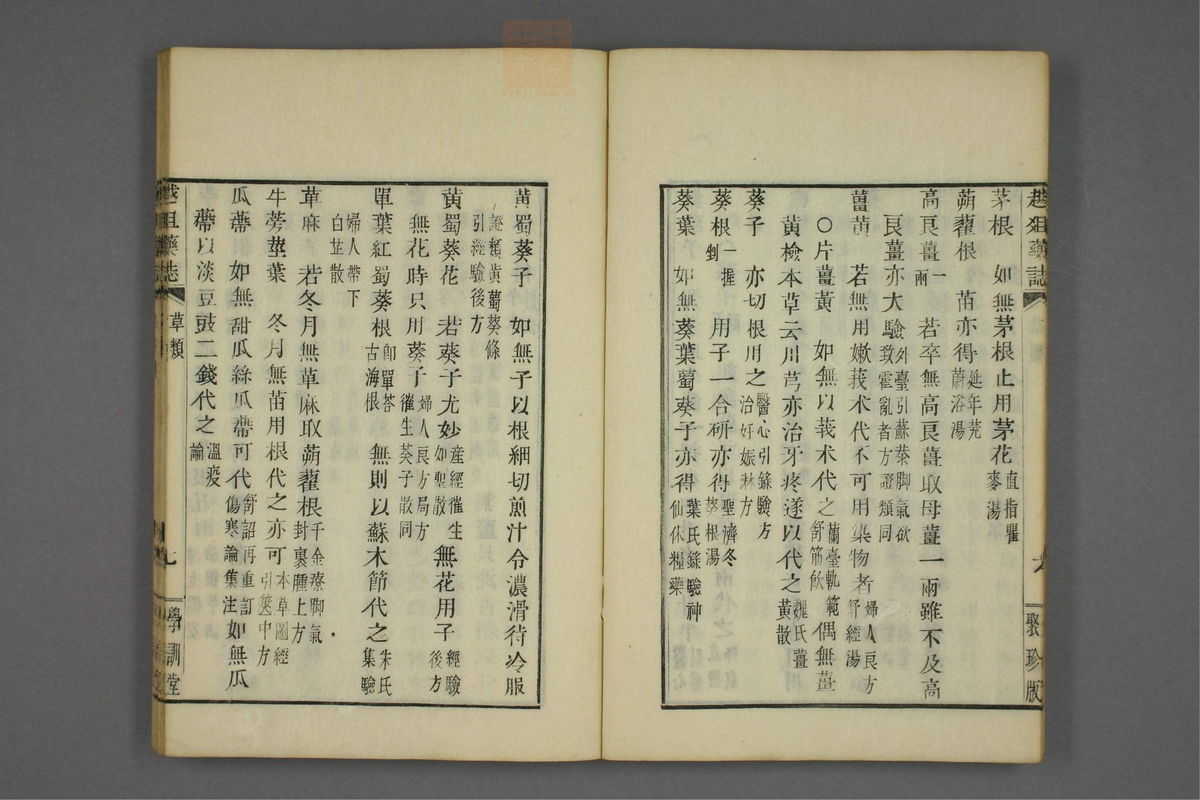 越俎藥誌 聚珍版
茅根 如無茅根止用茅花直指瞿麥湯
蒴藋根 苗亦得延年茺蔚浴湯
高良薑一兩 若卒無高良薑取母薑一兩雖不及高
良薑亦大驗外臺引蘇恭脚氣欲致霍亂者方證類同
薑黃 若無用嫩莪术代不可用染物者婦人良方舒經湯
○片薑黃 如無以莪术代之蘭臺軌範舒筋飮偶無薑
黃檢本草云川芎亦治牙疼遂以代之魏氏薑黃散
葵子 亦切根用之醫心引錄驗方治妊娠淋方
葵根一握剉 用子一合硏亦得聖濟冬葵根湯
葵葉 如無葵葉蜀葵子亦得葉氏錄驗神仙休糧藥
黃蜀葵子 如無子以根細切煎汁令濃滑待冷服
證類黃蜀葵條引經驗後方
黃蜀葵花 若葵子尤妙産經催生如聖散無花用子經驗後方
無花時只用葵子婦人良方局方催生葵子散同
單葉紅蜀葵根卽單荅古海根 無則以蘇木節代之朱氏集驗
婦人帶下白芷散
萆麻 若冬月無萆麻取蒴藋根千金療脚氣封裹腫上方
牛蒡莖葉 冬月無苗用根代之亦可本草圖經引篋中方
瓜蔕 如無甜瓜絲瓜蔕可代舒詔再重訂傷寒論集注如無瓜
蔕以淡豆豉二錢代之溫疫論
越俎藥誌 草類 七 學訓堂